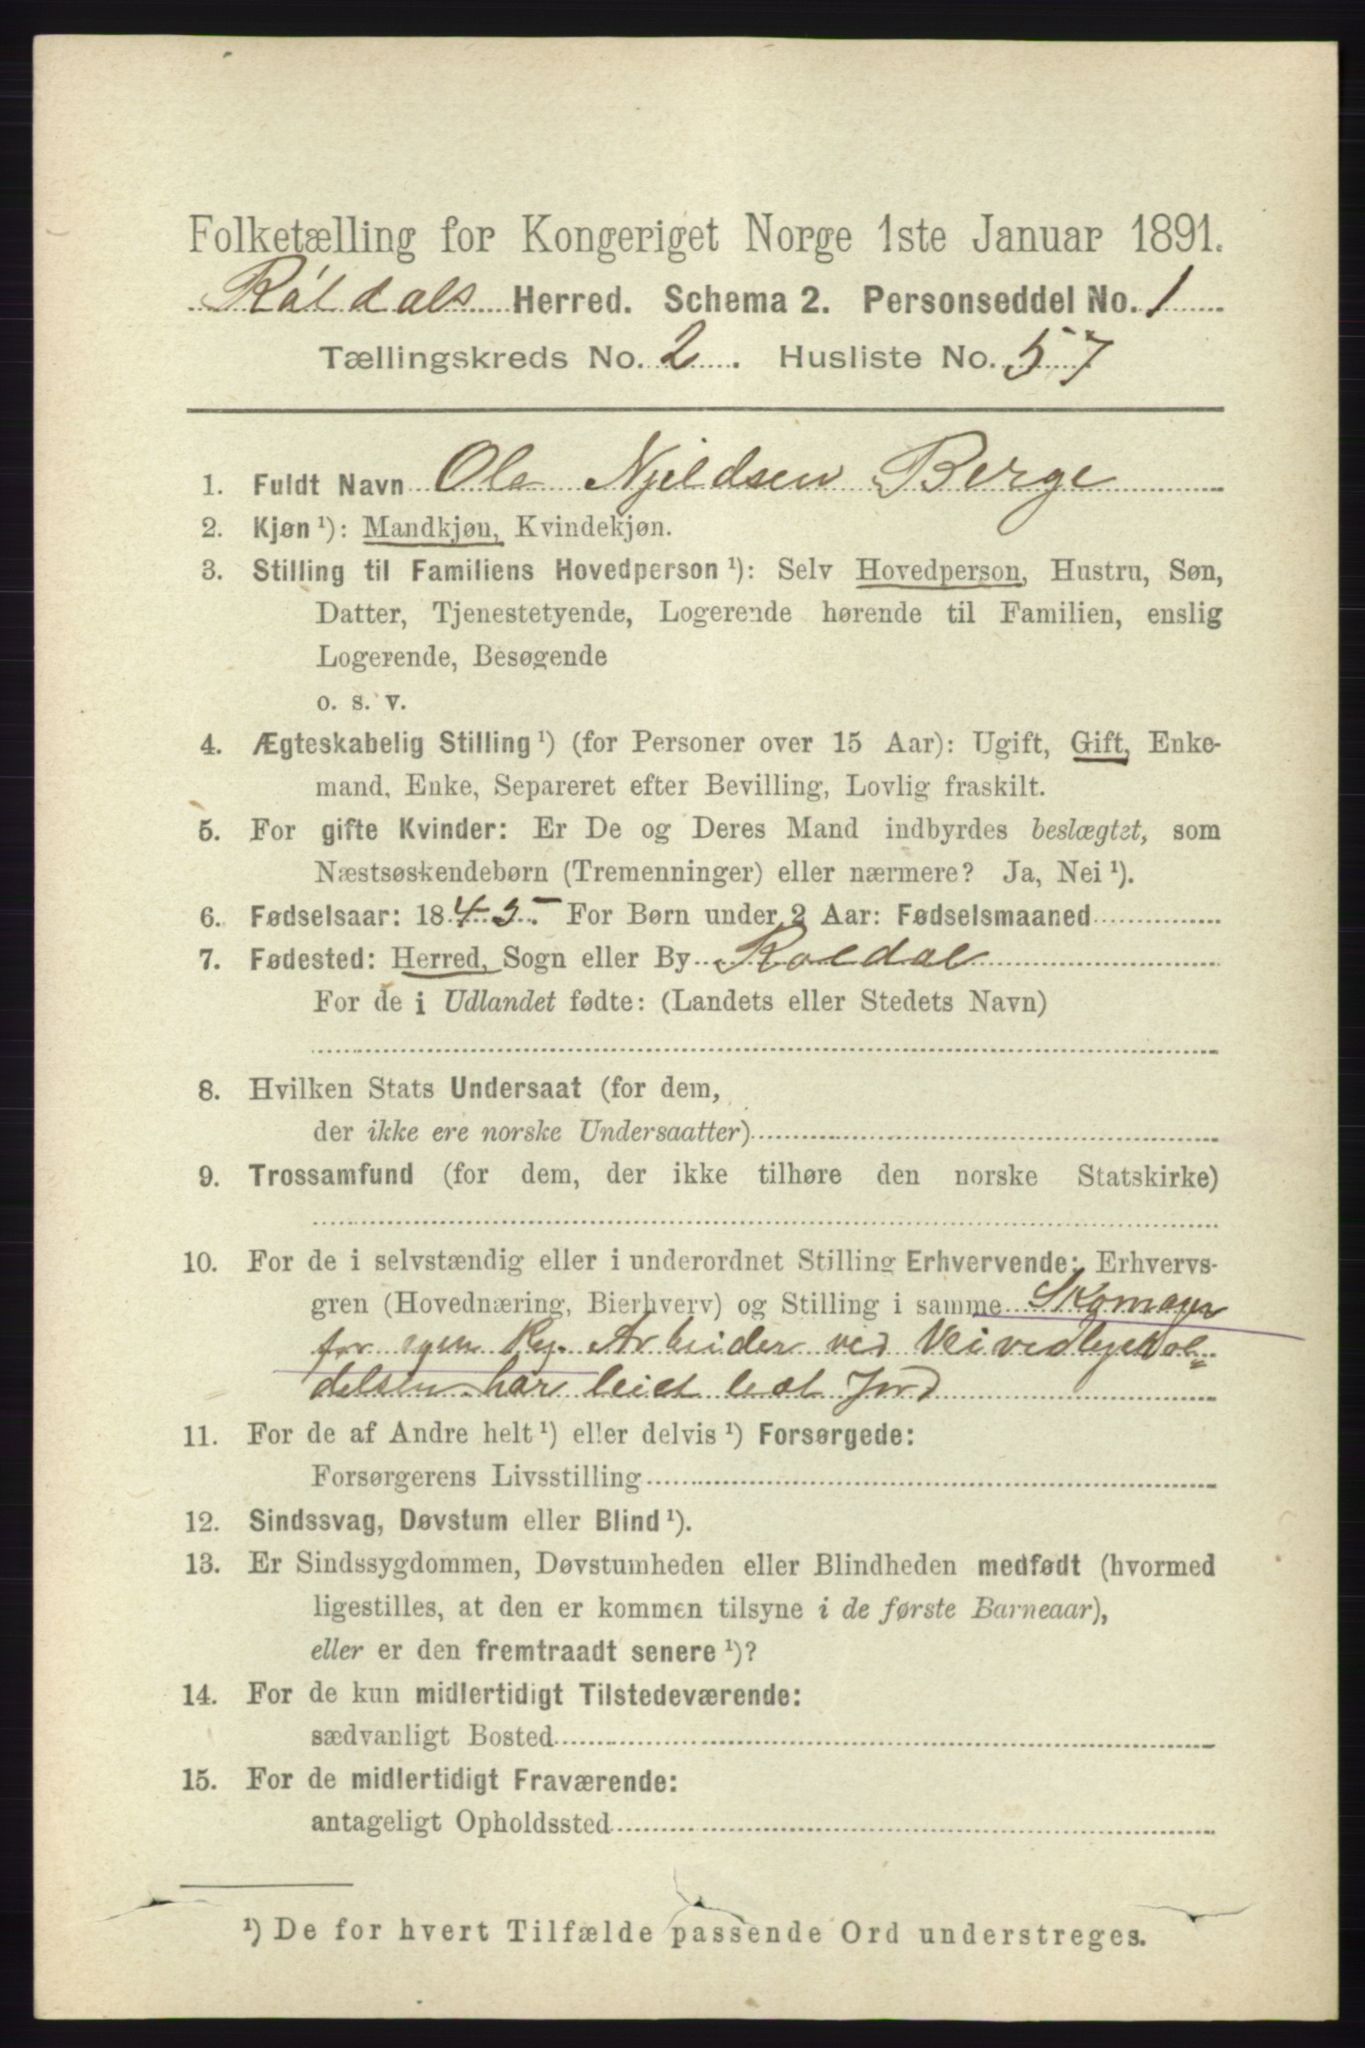 Folketælling for Kongeriget Norge 1ste Januar 1891.
Røldals Herred. Schema 2. Personseddel No. 1
Tællingskreds No. 2. Husliste No. 57
1. Fuldt Navn Ole Njeldsen Berge
2. Kjøn ¹): Mandkjøn, Kvindekjøn.
3. Stilling til Familiens Hovedperson ¹): Selv Hovedperson, Hustru, Søn,
Datter, Tjenestetyende, Logerende hørende til Familien, enslig
Logerende, Besøgende
o. s. v.
4. Ægteskabelig Stilling ¹) (for Personer over 15 Aar): Ugift, Gift, Enke-
mand, Enke, Separeret efter Bevilling, Lovlig fraskilt.
5. For gifte Kvinder: Er De og Deres Mand indbyrdes beslægtet, som
Næstsøskendebørn (Tremenninger) eller nærmere? Ja, Nei ¹).
6. Fødselsaar: 1845. For Børn under 2 Aar: Fødselsmaaned
7. Fødested: Herred, Sogn eller By Roldal
For de i Udlandet fødte: (Landets eller Stedets Navn)
8. Hvilken Stats Undersaat (for dem,
der ikke ere norske Undersaatter)
9. Trossamfund (for dem, der ikke tilhøre den norske Statskirke)
10. For de i selvstændig eller i underordnet Stilling Erhvervende: Erhvervs-
gren (Hovednæring, Bierhverv) og Stilling i samme Skomager
for egen Rg. Arbeider ved Veivedligehol=
delsen har leiet lidt Jord
11. For de af Andre helt ¹) eller delvis ¹) Forsørgede:
Forsørgerens Livsstilling
12. Sindssvag, Døvstum eller Blind ¹).
13. Er Sindssygdommen, Døvstumheden eller Blindheden medfødt (hvormed
ligestilles, at den er kommen tilsyne i de første Barneaar),
eller er den fremtraadt senere ¹)?
14. For de kun midlertidigt Tilstedeværende:
sædvanligt Bosted
15. For de midlertidigt Fraværende:
antageligt Opholdssted
¹) De for hvert Tilfælde passende Ord understreges.